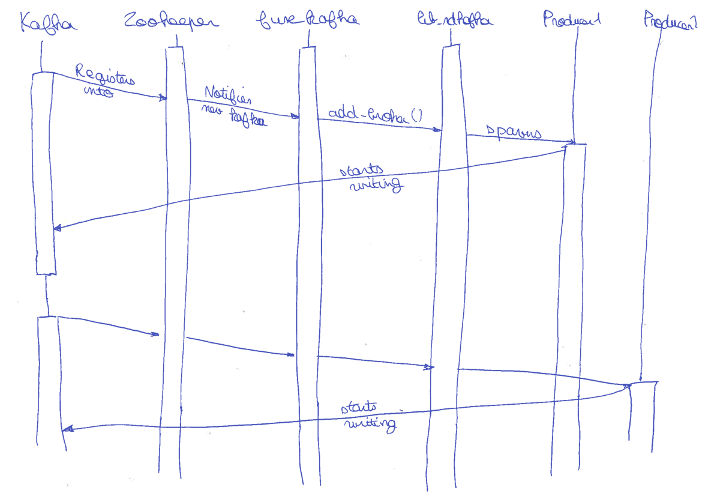 Kafka Zookeeper fuse_kafka librdkafka Producer1 Producer2
Registers
into
Notifies
new kafka
add_broker()
spawns
starts
writing
starts
writing